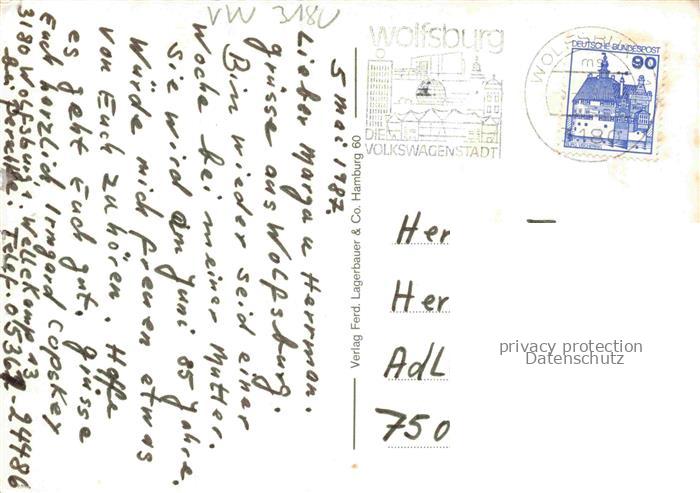 VW 3180
5 mai 1987
Lieber Marga u Herrman.
grüsse aus Wolfsburg.
Bin wieder seid einer
Woche bei meiner Mutter.
Sie wird am Juni 85 Jahre.
Würde mich freuen etwas
von Euch zu hören. Hoffe
es geht Euch gut. grüsse
Euch herzlich Irmgard
3180 Wolfsburg, 13
Telef. 05362 24486
Verlag Ferd. Lagerbauer & Co. Hamburg 60
wolfsburg
DIE
VOLKSWAGENSTADT
WOLFSBURG
ms
DEUTSCHE BUNDESPOST
90
Her
Her
AdL
750
privacy protection
Datenschutz